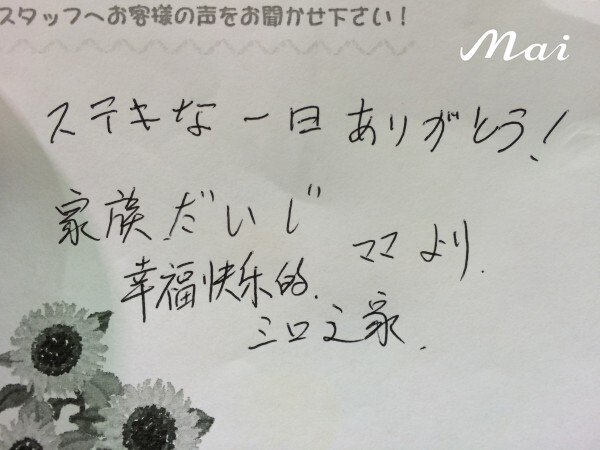 スタッフへお客様の声をお聞かせ下さい！
Mai
ステキな一日ありがとう！
家族だいじ
ママより.
幸福快乐的.
三口之家.